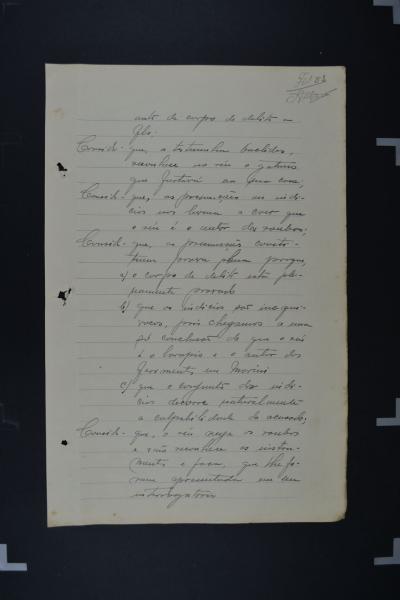 Fl 83
auto de corpo de delito a
fls.
Consid- que, a testemunha
reconhece no réu o gatuno
que furtára em sua casa;
Consid- que, as presumpções ou indi-
cios nos levam a crer que
o réu é o autor dos roubos;
Consid- que, as presumpções consti-
tuem prova plena porque,
a) o corpo de delito está ple-
namente provado
b) que os indicios são inequi-
vocos, pois chegamos a uma
só conclusão de que o réu
é o larapio e o autor dos
ferimentos em
c) que o conjunto dos indi-
cios decorre naturalmente
a culpabilidade do acusado;
Consid- que, o réu nega os roubos
e não reconhece os instru-
mentos e faca, que lhe fo-
ram apresentados em seu
interrogatorio